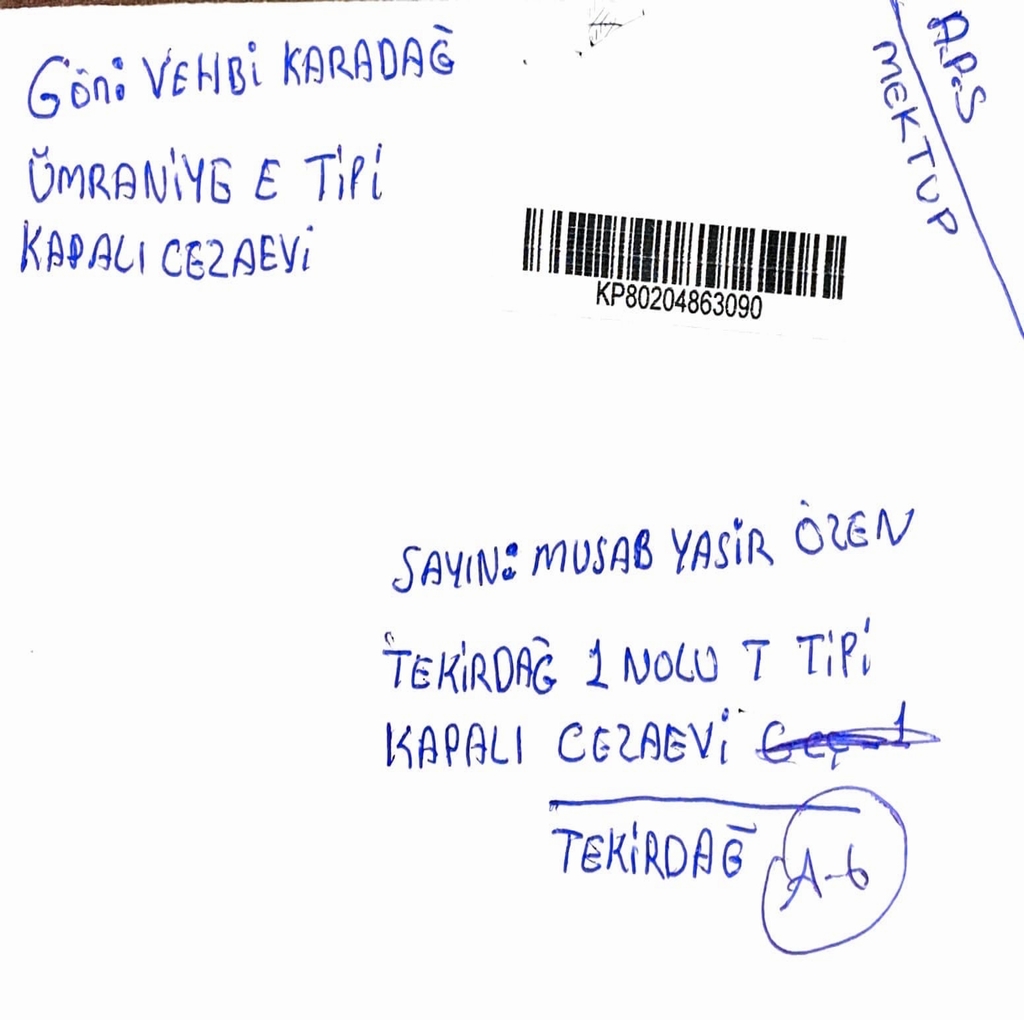 Gön: VEHBİ KARADAĞ
ÜMRANİYE E TİPİ
KAPALI CEZAEVİ
A.P.S
MEKTUP
KP80204863090
SAYIN: MUSAB YASİR ÖZEN
TEKİRDAĞ 1 NOLU T TİPİ
KAPALI CEZAEVİ Geç-1
TEKİRDAĞ
A-6